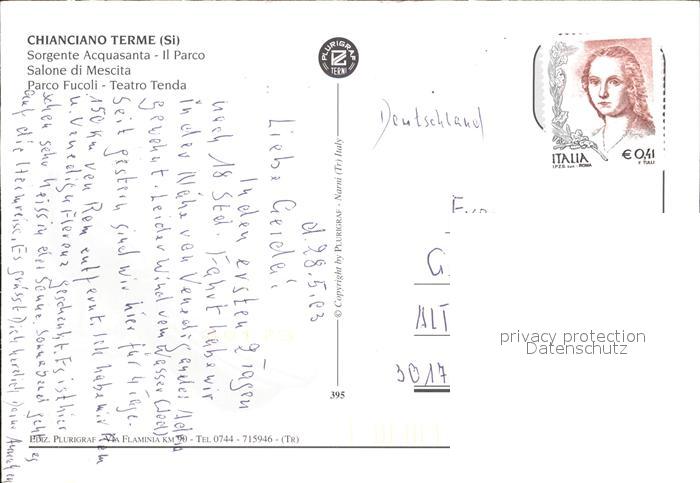 CHIANCIANO TERME (Si)
Sorgente Acquasanta - Il Parco
Salone di Mescita
Parco Fucoli - Teatro Tenda
PLURIGRAF
TERNI
d. 28.5.03
Liebe Gerda!
In den ersten 2 Tagen
nach 18 Std. Fahrt haben wir
in der Nähe von Venedig an der
gewohnt. Leider Wind vom Wasser
Seit gestern sind wir hier für 4 Tage.
150 km von Rom entfernt. Ich habe mir Rom
u. Venedig u. Florenz geschenkt. Es ist hier
schon sehr heiss in der Sonne. Sonnabend geht es
auf die Heimreise. Es grüsst Dich herzlich Deine
© Copyright by PLURIGRAF - Narni (Tr) Italy
395
EDIZ. PLURIGRAF - VIA FLAMINIA KM 90 - TEL 0744 - 715946 - (TR)
Deutschland
ITALIA
€ 0,41
I.P.Z.S. - ROMA
F TULLI
G
ALT
3017
privacy protection
Datenschutz